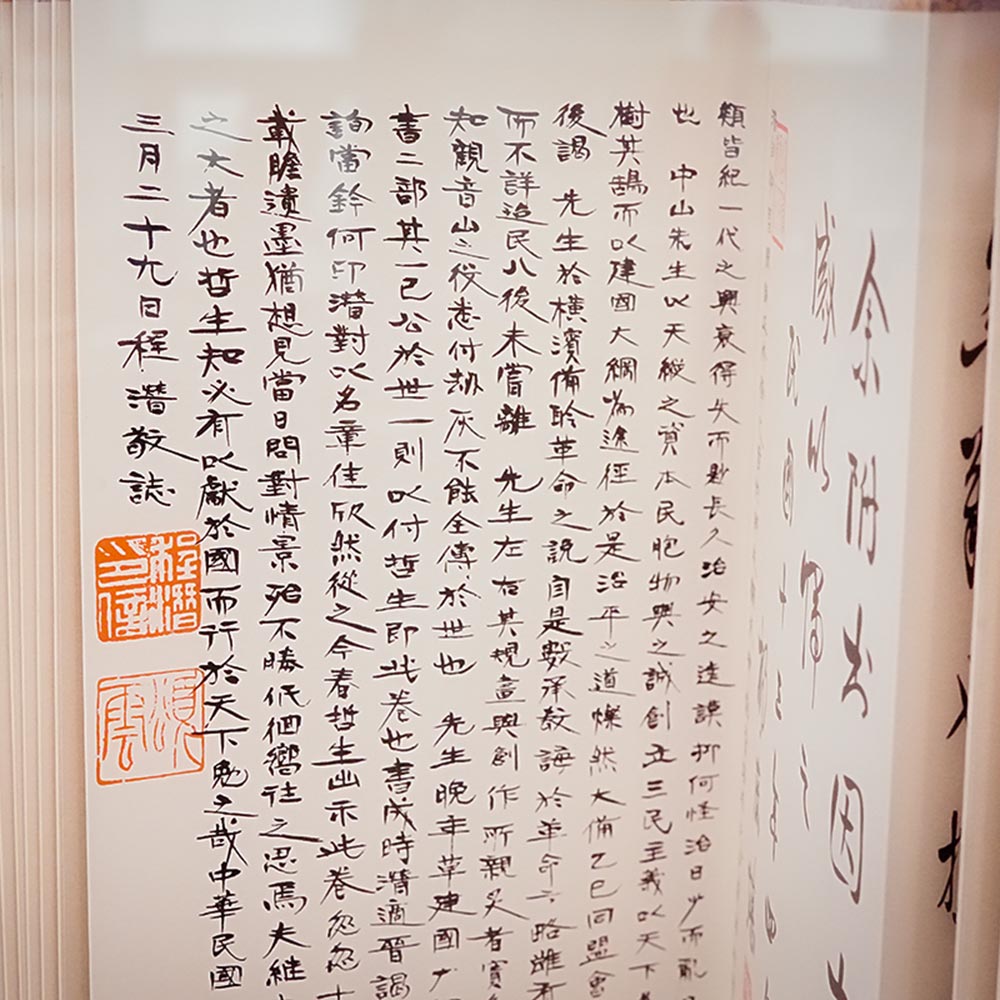 余附書因
歲以
類皆紀一代之興衰得失而尠長久治安之遠謨抑何怪治日少而亂
也 中山先生以天縱之資本民胞物與之誠創立三民主義以天下
樹其鵠而以建國大綱為進徑於是治平之道燦然大備乙巳同盟會
後謁 先生於橫濱備聆革命之說自是數承教誨於革命方略雖有
而不詳迨民八後未嘗離 先生左右其規畫與創作所親炙者實
知觀音山之役悉付劫灰不蝕全傳於世也 先生晚年草建國大
書二部其一已公於世一則以付哲生即此卷也書成時潛適晉謁
詢當鈐何印潛對以名章佳欣然從之今春哲生出示此卷忽忽十
載瞻漬墨猶想見當日問對情景殆不勝低徊嚮往之思焉夫繼
之大者也哲生知必有以獻於國而行於天下勉之哉中華民國
三月二十九日程潛敬誌
程潛之印信
頌雲